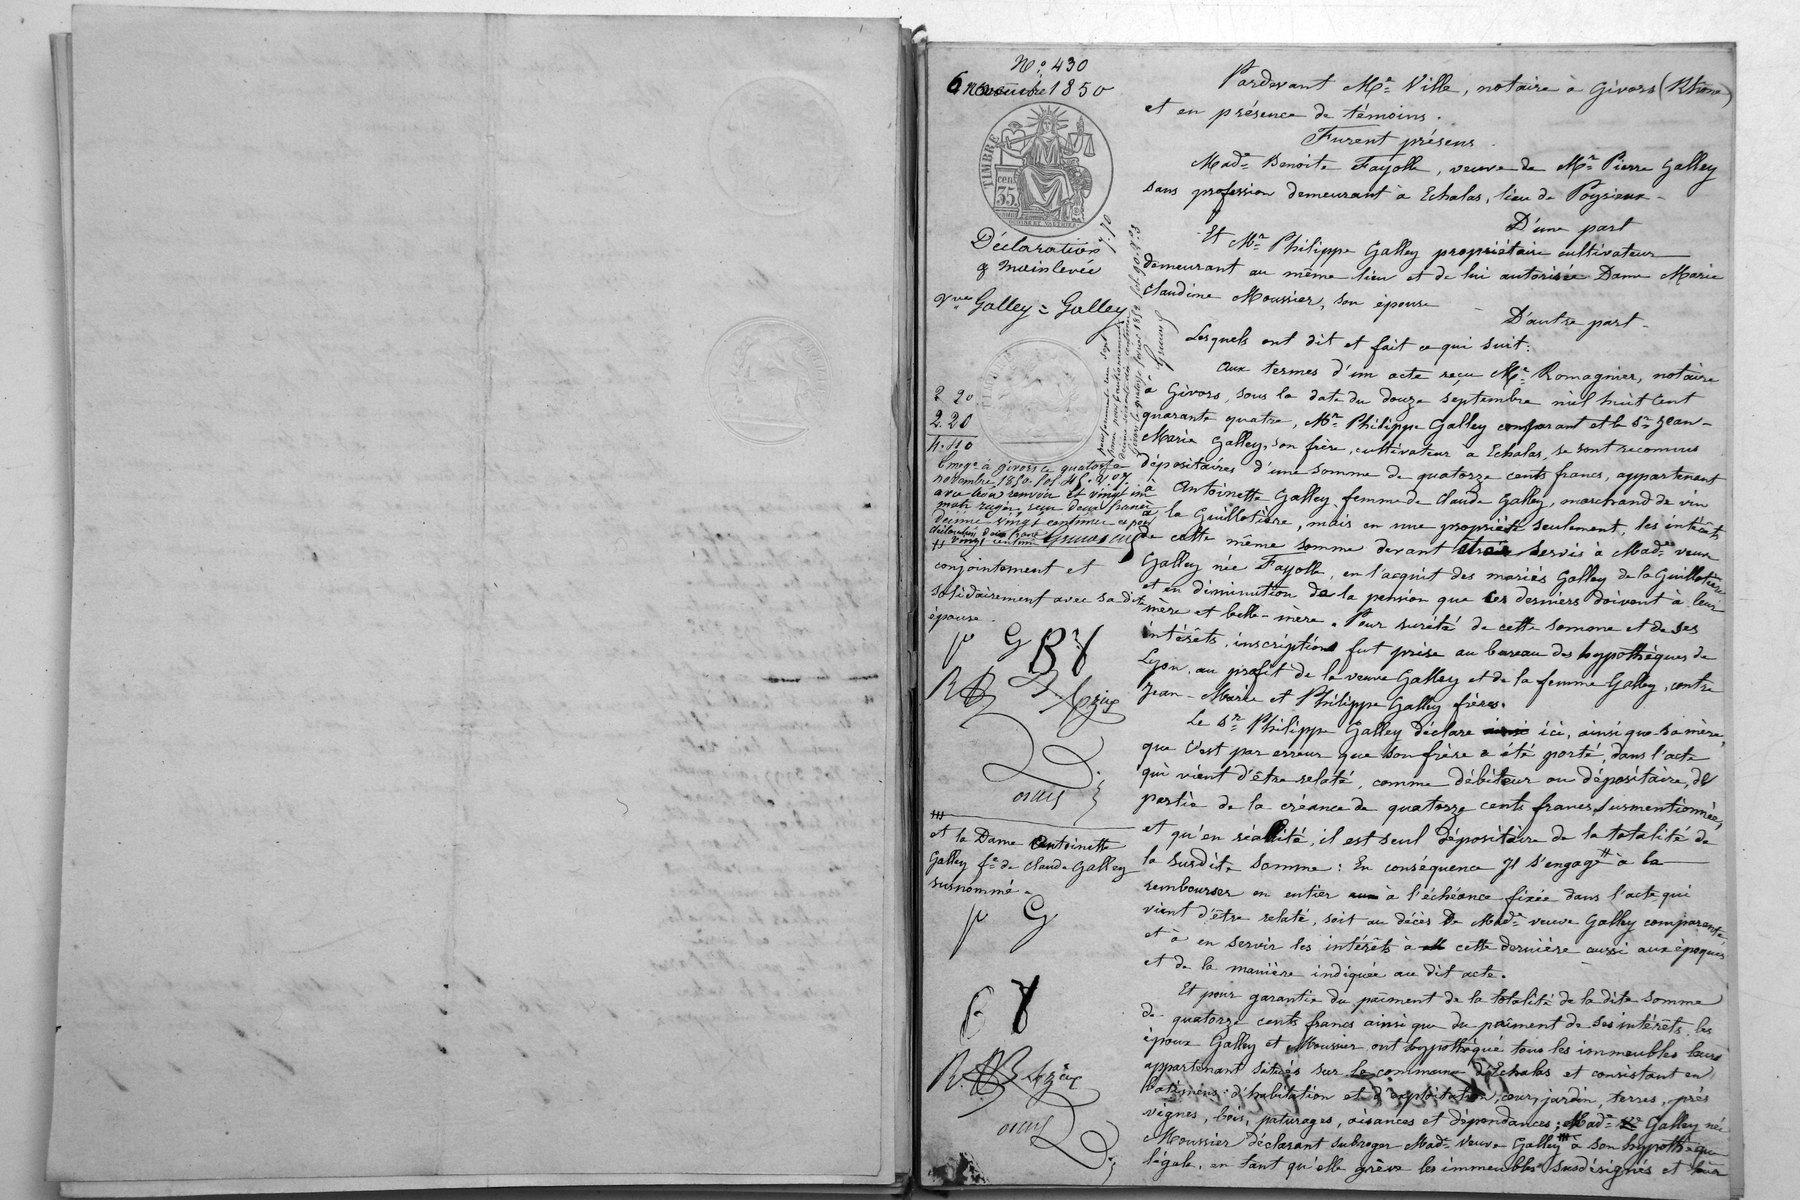 N.° 430
6 novembre 1850
TIMBRE
cen
35.
Déclaration
& mainlevée
7.70
Vve Galley = Galley
2 20
2.20
4.40
Enreg.é à Givors ce quatorze
novembre 1850. fol 45.
conjointement et
solidairement avec sa dite
épouse.
p G B G
et la Dame Antoinette
Galley fe de Claude Galley
susnommé.
p G
Pardevant Me Ville, notaire à Givors (Rhône)
et en présence de témoins.
Furent présens
Made Benoite Fayolle, veuve de Mr Pierre Galley
sans profession demeurant à Echalas, lieu de Poysieux
D'une part
Et Mr Philippe Galley propriétaire cultivateur
demeurant au même lieu et de lui autorisée Dame Marie
Claudine Moussier, son épouse
D'autre part
Lesquels ont dit et fait ce qui suit:
Aux termes d'un acte reçu Me Romagnier, notaire
à Givors, sous la date du douze septembre mil huit cent
quarante quatre, Mr Philippe Galley comparant et le Sr Jean-
Marie Galley, son frère, cultivateur à Echalas, se sont reconnus
dépositaires d'une somme de quatorze cents francs, appartenant
à Antoinette Galley, femme de Claude Galley, marchand de vin
à la Guillotière, mais en nue propriété seulement, les intérêts
de cette même somme devant être servis à Made veuve
Galley née Fayolle, en l'acquit des mariés Galley de la Guillotière
et en diminution de la pension que ces derniers doivent à leur
mère et belle-mère. Pour sureté de cette somme et de ses
intérêts, inscription fut prise au bureau des hypothèques de
Lyon, au profit de la veuve Galley et de la femme Galley, contre
Jean-Marie et Philippe Galley frères.
Le Sr Philippe Galley déclare ici, ainsi que sa mère,
que c'est par erreur que son frère a été porté, dans l'acte
qui vient d'être relaté, comme débiteur ou dépositaire, de
partie de la créance de quatorze cents francs susmentionnée,
et qu'en réalité, il est seul dépositaire de la totalité de
la susdite somme: En conséquence Il s'engage # à la
rembourser en entier à l'échéance fixée dans l'acte qui
vient d'être relaté, soit au décès de Made veuve Galley comparante
et à en servir les intérêts à cette dernière aussi aux époques
et de la manière indiquée au dit acte.
Et pour garantie du paiment de la totalité de la dite somme
de quatorze cents francs ainsi que du paîment de ses intérêts, les
époux Galley et Moussier, ont hypothéqué tous les immeubles leurs
appartenant situés sur la commune d'Echalas et consistant en
batimens d'habitation et d'exploitation, cour, jardin, terres, prés
vignes, bois, paturages, aisances et dépendances; Made Galley née
Moussier déclarant subroger Made veuve Galley à son hypothèque
légale, en tant qu'elle grève les immeubles susdésignés et